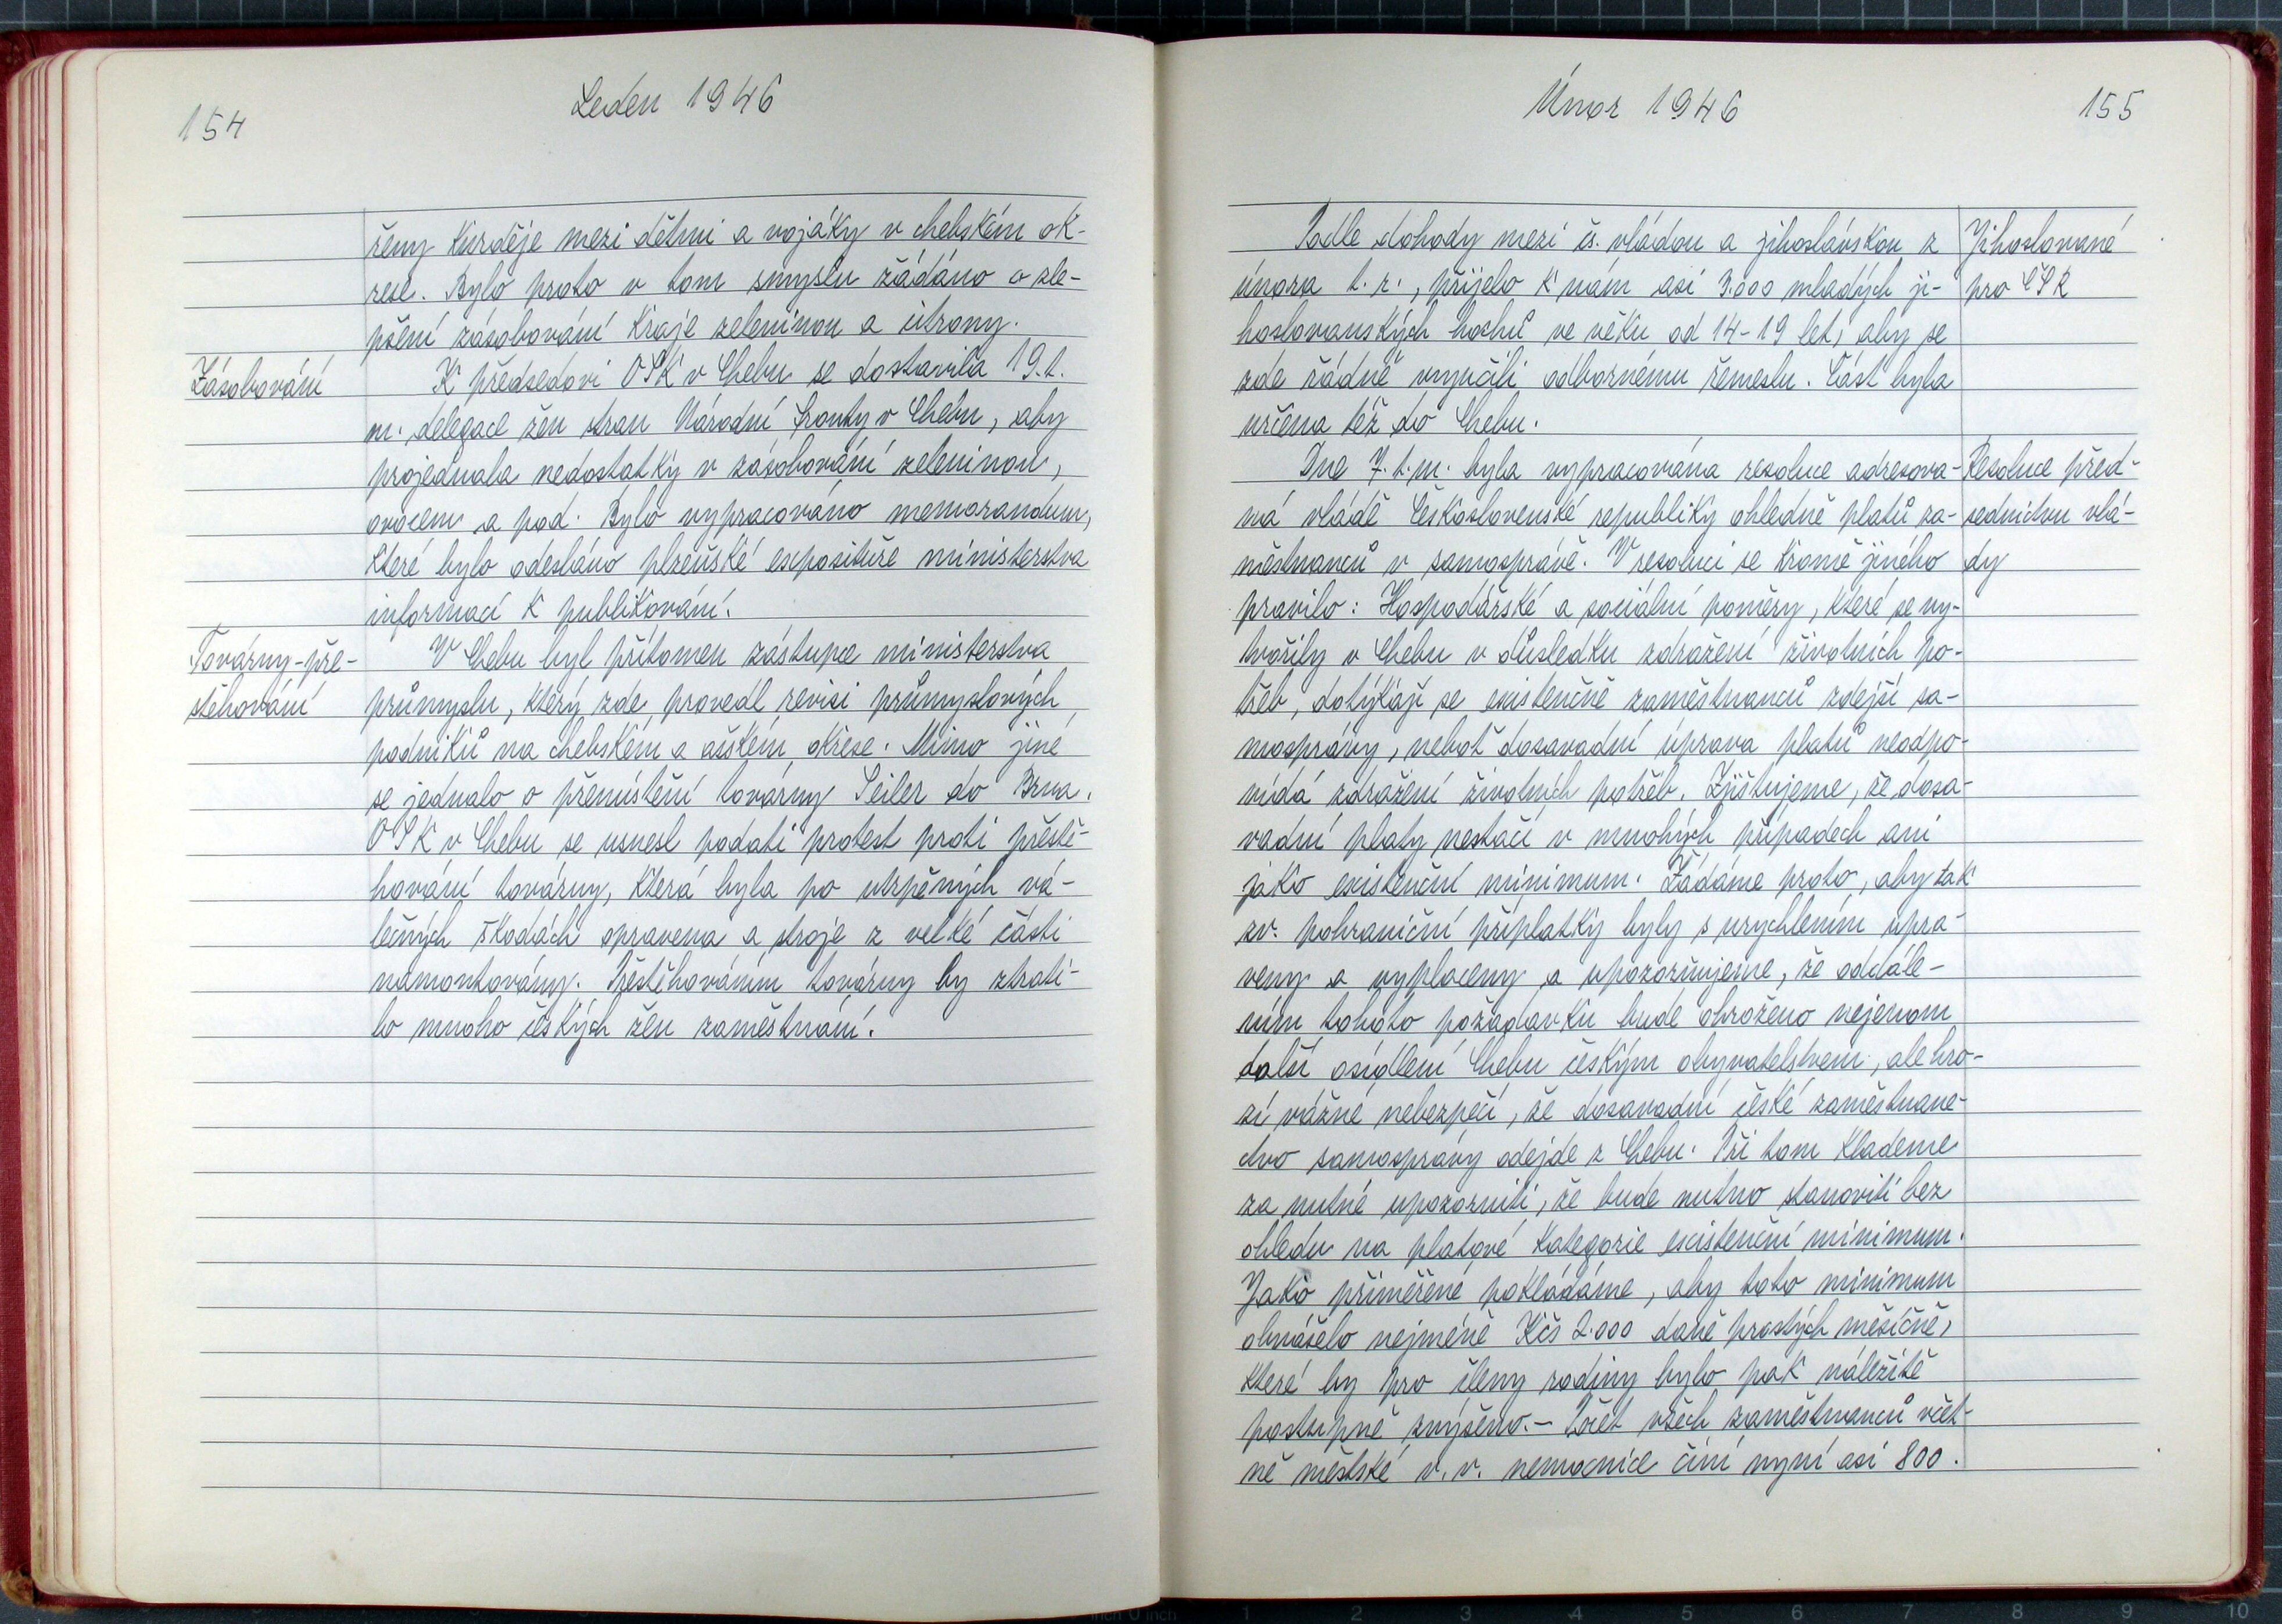 154
Leden 1946
řeny kurděje mezi dětmi a vojáky v chebském ok-
rese. Bylo proto v tom smyslu žádáno o zle-
pšení zásobování kraje zeleninou a citrony.
Zásobování
K předsedovi OSK v Chebu se dostavila 19.t.
m. delegace žen stran Národní fronty v Chebu, aby
projednala nedostatky v zásobování zeleninou,
ovocem a pod. Bylo vypracováno memorandum,
které bylo odesláno plzeňské exposituře ministerstva
informací k publikování.
Továrny-pře-
stěhování
V Chebu byl přítomen zástupce ministerstva
průmyslu, který zde provedl revisi průmyslových
podniků na chebském a ašském okrese. Mimo jiné
se jednalo o přemístění továrny Seiler do Brna.
OSK v Chebu se usnesl podati protest proti přestě-
hování továrny, která byla po utrpěných vá-
lečných škodách opravena a stroje z velké části
namontovány. Přestěhováním továrny by ztrati-
lo mnoho českých žen zaměstnání.
Únor 1946
155
Podle dohody mezi čs. vládou a jihoslávskou z
února t.r., přijelo k nám asi 3.000 mladých ji-
hoslovanských hochů ve věku od 14-19 let, aby se
zde řádně vyučili odbornému řemeslu. Část byla
určena též do Chebu.
Jihoslované
pro ČSR
Dne 7.t.m. byla vypracována resoluce adresova-
ná vládě Československé republiky ohledně platů za-
městnanců v samosprávě. V resoluci se kromě jiného
pravilo: Hospodářské a sociální poměry, které se vy-
tvořily v Chebu v důsledku zdražení životních po-
třeb, dotýkají se existenčně zaměstnanců zdejší sa-
mosprávy, neboť dosavadní úprava platů neodpo-
vídá zdražení životních potřeb. Zjišťujeme, že dosa-
vadní platy nestačí v mnohých případech ani
jako existenční minimum. Žádáme proto, aby tak
zv. pohraniční příplatky byly s urychlením upra-
veny a vyplaceny a upozorňujeme, že oddále-
ním tohoto požadavku bude ohroženo nejenom
další osídlení Chebu českým obyvatelstvem, ale hro-
zí vážné nebezpečí, že dosavadní české zaměstnane-
ctvo samosprávy odejde z Chebu. Při tom klademe
za nutné upozorniti, že bude nutno stanoviti bez
ohledu na platové kategorie existenční minimum.
Jako přiměřené pokládáme, aby toto minimum
obnášelo nejméně Kčs 2.000 daně prostých měsíčně,
které by pro členy rodiny bylo pak náležitě
postupně zvýšeno.- Počet všech zaměstnanců včet-
ně městské v.v. nemocnice činí nyní asi 800.
Resoluce před-
sednictvu vlá-
dy